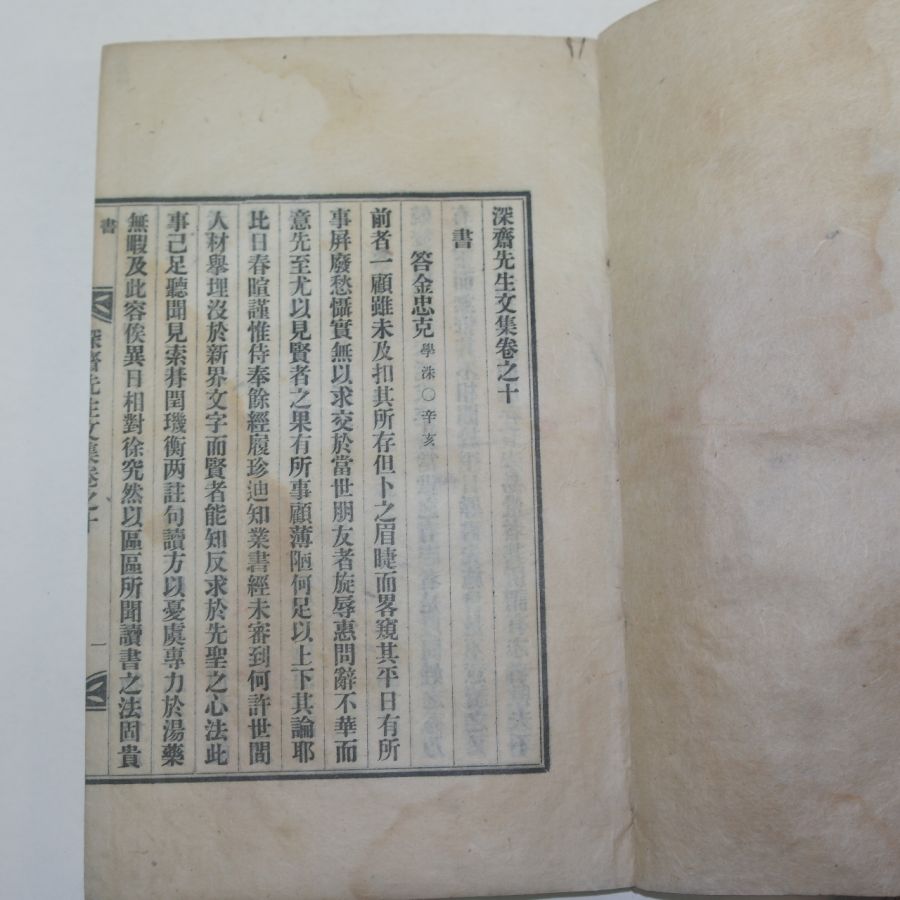 深齋先生文集卷之十
書
答金忠克 學洙○辛亥
前者一顧雖未及扣其所存但卜之眉睫而畧窺其平日有所
事屏廢愁懾實無以求交於當世朋友者旋辱惠問辭不華而
意先至尤以見賢者之果有所事顧薄陋何足以上下其論耶
比日春暄謹惟侍奉餘經履珍迪知業書經未審到何許世間
人材擧埋沒於新界文字而賢者能知反求於先聖之心法此
事已足聽聞見索朞閏璣衡两註句讀方以憂處專力於湯藥
無暇及此容俟異日相對徐究然以區區所聞讀書之法固貴
書
深齋先生文集卷之十
一